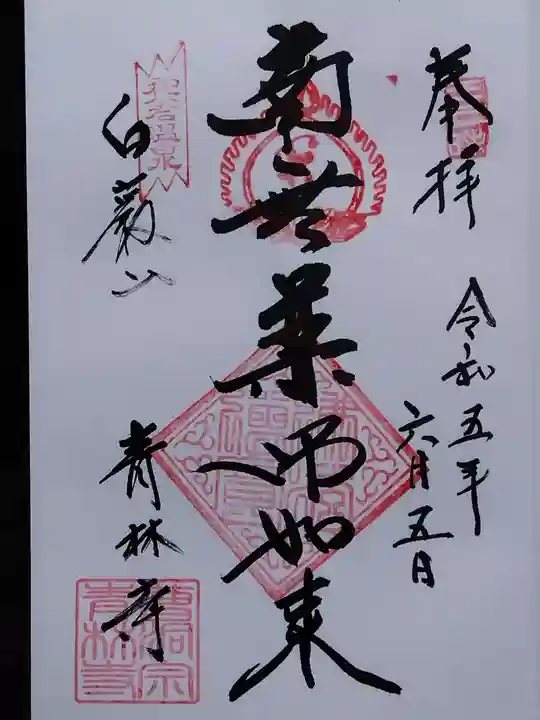 奉拝
令和五年
六月五日
南無薬師如来
白巌山
青林寺
曹洞宗
青林寺